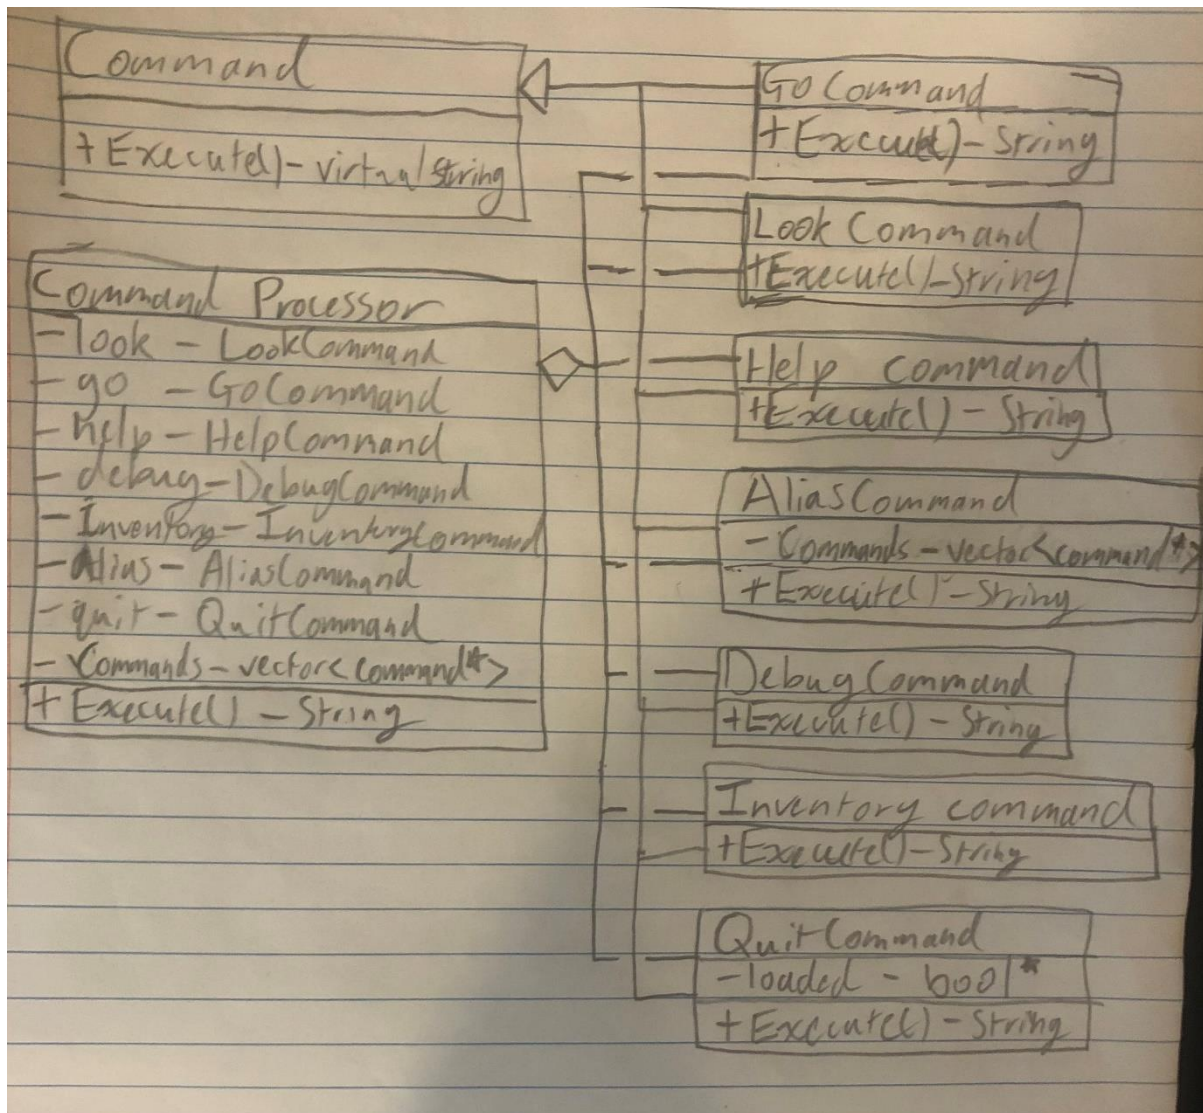 Command
+ Execute() - virtual string
Command Processor
- look - LookCommand
- go - GoCommand
- help - HelpCommand
- debug - DebugCommand
- Inventory - InventoryCommand
- Alias - AliasCommand
- quit - QuitCommand
- Commands - vector<command*>
+ Execute() - String
GoCommand
+ Execute() - String
LookCommand
+Execute() - String
Help command
+Execute() - String
AliasCommand
- Commands - vector<command*>
+ Execute() - String
DebugCommand
+Execute() - String
Inventory command
+Execute() - String
QuitCommand
- loaded - bool*
+ Execute() - String